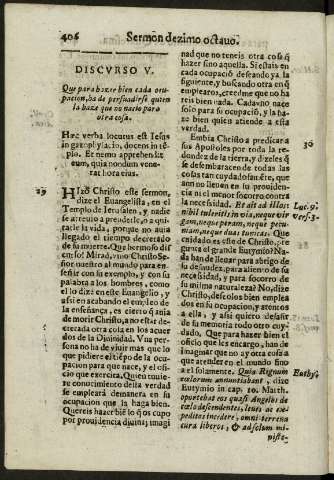 406
Sermon dezimo octavo.
DISCVRSO V.
Que para hazer bien cada ocu-
pacion, ha de persuadirse quien
la haze que no nacio para
otra cosa.
Hæc verba locutus est Iesus
in gazophylatio, docens in tē-
plo. Et nemo apprehendit
eum, quia nondum vene-
rat hora eius.
29
HIzo Christo este sermon,
dize el Euangelista, en el
Templo de Ierusalen, y nadie
se atreuio a prenderle, o a qui-
tarle la vida, porque no auia
llegado el tiempo decretado
de su muerte. Que hermoso dis
curso! Mirad, vino Christo Se-
ñor nuestro al mundo para en-
señar con su exemplo, y con su
palabra a los hombres, como
lo dize en este Euangelio, y
assi en acabando el empleo de
la enseñança, es cierto q̄ ania
de morir Christo, a no estar de-
cretada otra cosa en los acuer
dos de la Diuinidad. Vna per-
sona no ha de viuir mas que lo
que pidiere el tiēpo de la ocu-
pacion para que nace, y el ofi-
cio que exercita. Quien tuuie-
re conocimiento desta verdad
se empleará demanera en su
ocupacion que la haga bien.
Quereis hazer biē lo q̄ os cupo
por prouidencia diuina; imagi
nad que no teneis otra cosa q̄
hazer sino aquella. Si estais en
cada ocupació deseando ya la
siguiente, y buscando otra en q̄
emplearos, creedme que no ha
reis bien nada. Cada vno nace
solo para su ocupació, y la ha-
ze bien quien atiende a esta
verdad.
30
Embia Christo a predicar a
sus Apostoles por toda la re-
dondez de la tierra, y dizeles q̄
se desembaracen de todas las
cosas, hasta de este cuidado, que
aun no lleuen en su prouiden-
cia ni el menor socorro contra
la necessidad. Et ait ad illos:
nihil tuleritis in via, neque vir
gam, neque peram, neque pecu-
niam, neque duas tunicas. Que
Luc. 9.
vers. 3.
cuidado es este de Christo, re-
para el grande Eutymio? Na-
da han de lleuar para abrigo de
su desnudez, para aliento de su
necessidad, y para socorro de
su milma naturaleza? No, dize
Christo, deseolos bien emplea
dos en su ocupacion, y atentos
a ella, y assi quiero desasir
de su memoria todo otro cuy-
dado. Que para hazer bien el
oficio que les encargo, han de
imaginar que no ay otra cosa
que atender en el mundo sino
a el solamente. Quia Regnum
Euthy.
cælorum annuntiabant, dize
Eutymio in cap. 10. Matth.
oportebat eos quasi Angelos de
cælo descendentes, leues ac ex-
peditos incedere, omni terrena
cura liberos, & ad solum mi-
niste-